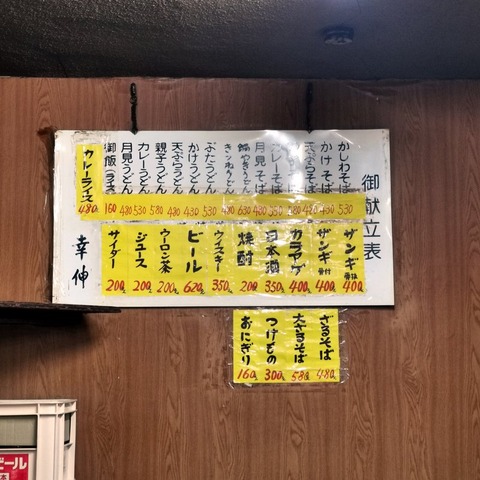 御献立表
かしわそば 530
かけそば 430
天ぷらそば 480
月見そば 480
カレーそば 530
鍋やきうどん 630
きつねうどん 480
ぶたうどん 530
かけうどん 430
天ぷらうどん 480
親子うどん 580
カレーうどん 530
月見うどん 480
御飯 160
カレーライス 480
ザンギ 骨抜 400
ザンギ 骨付 400
カラアゲ 400
日本酒 350
焼酎 200
ウイスキー 350
ビール 620
ウーロン茶 200
ジュース 200
サイダー 200
幸伸
ざるそば 480
大ざるそば 580
つけもの 300
おにぎり 160
ビール